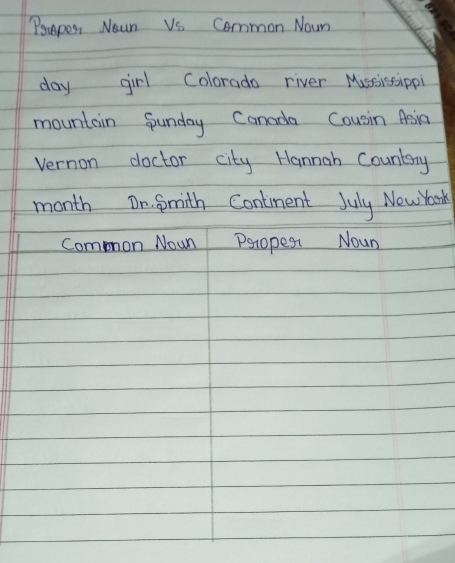 Proper Noun Vs Common Noun
day girl Colorado river Mississippi
mountain Sunday Canada Cousin Asia
Vernon doctor city Hannah Country
month Dr. Smith Continent July New York
Common Noun Proper Noun